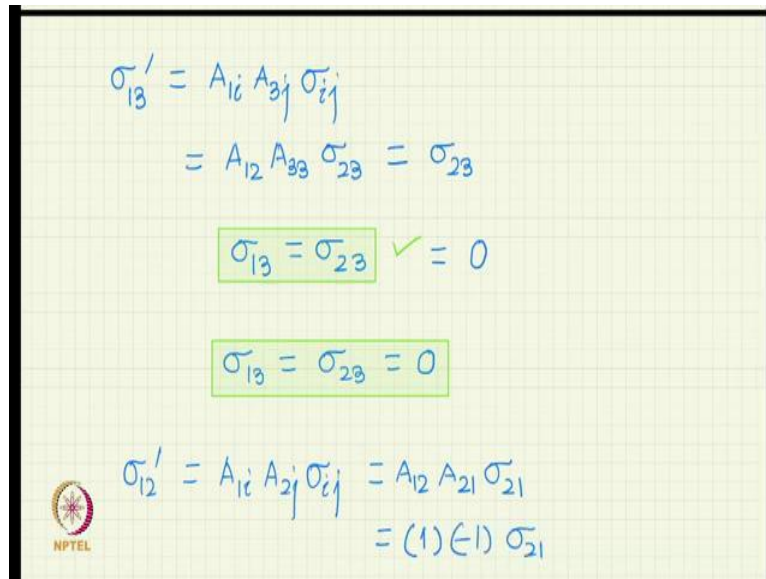 σ₁₃′ = A₁ᵢ A₃ⱼ σᵢⱼ
= A₁₂ A₃₃ σ₂₃ = σ₂₃
σ₁₃ = σ₂₃ ✓ = 0
σ₁₃ = σ₂₃ = 0
σ₁₂′ = A₁ᵢ A₂ⱼ σᵢⱼ = A₁₂ A₂₁ σ₂₁
= (1) (-1) σ₂₁
NPTEL